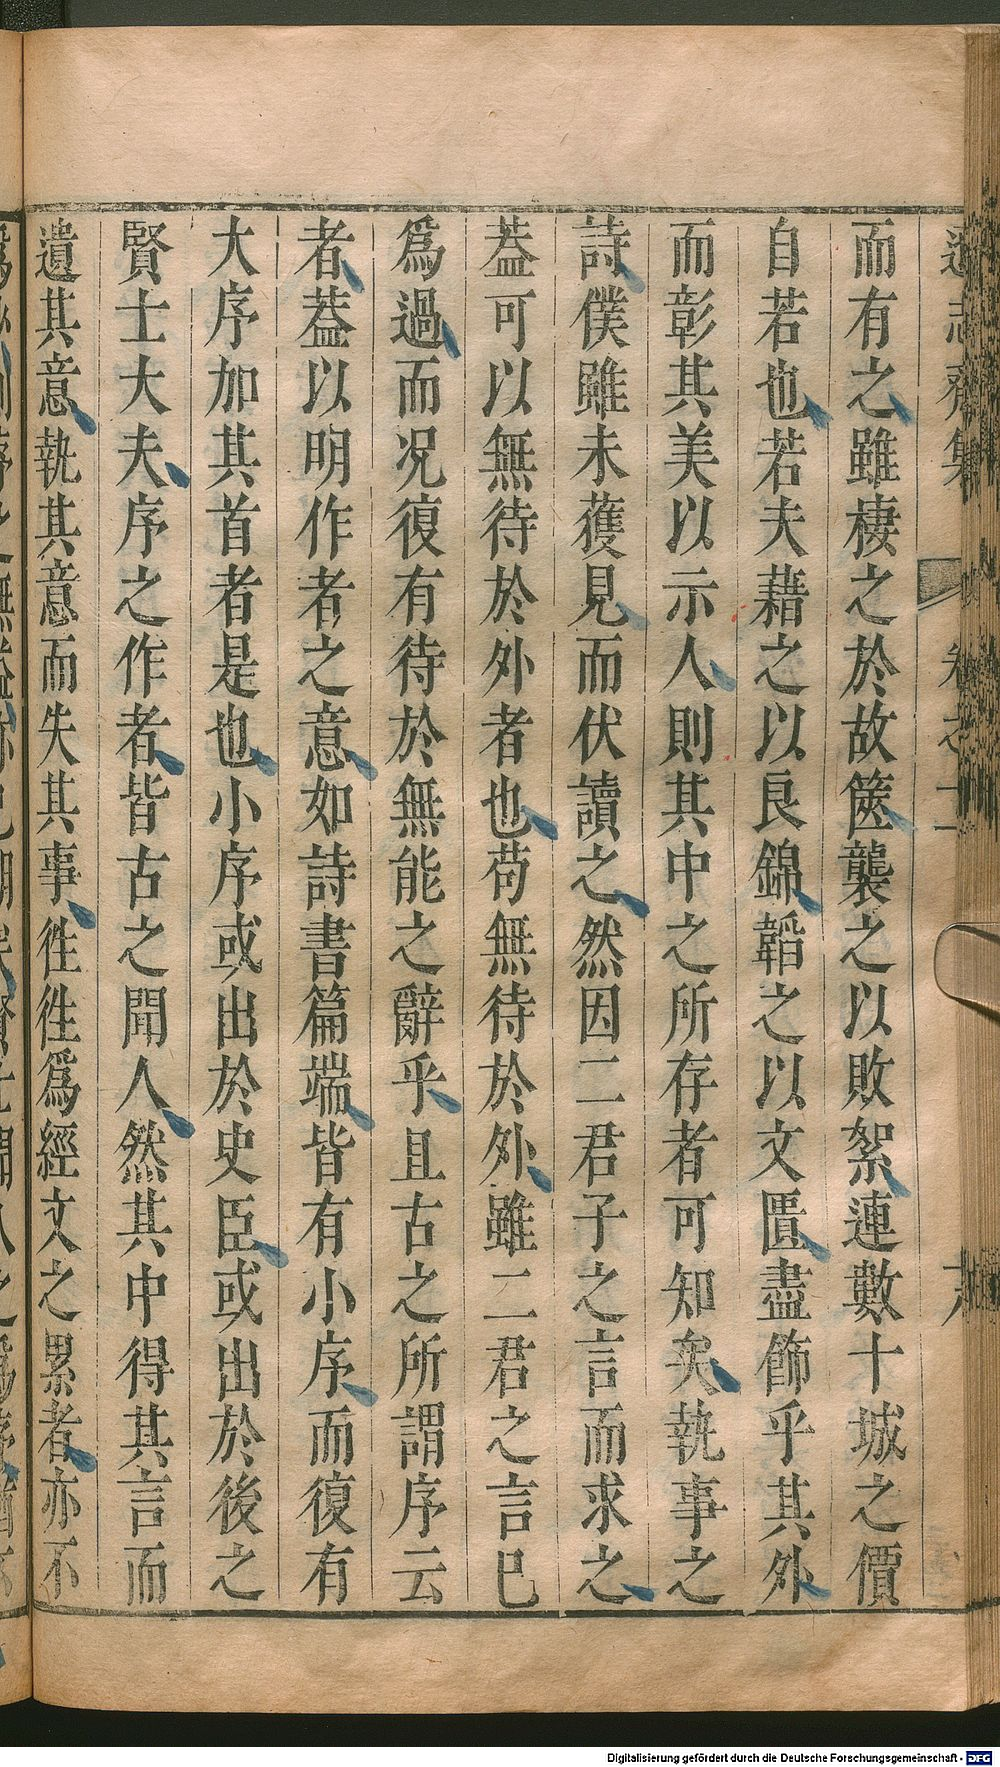 遜志齋集 卷之十一
而有之雖棲之於故篋襲之以敗絮連數十城之價
自若也若夫藉之以良錦韜之以文匱盡飾乎其外
而彰其美以示人則其中之所存者可知矣執事之
詩僕雖未獲見而伏讀之然因二君子之言而求之
葢可以無待於外者也苟無待於外雖二君之言已
爲過而况復有待於無能之辭乎且古之所謂序云
者葢以明作者之意如詩書篇端皆有小序而復有
大序加其首者是也小序或出於史臣或出於後之
賢士大夫序之作者皆古之聞人然其中得其言而
遺其意執其意而失其事徃徃爲經文之累者亦不
Digitalisierung gefördert durch die Deutsche Forschungsgemeinschaft - DFG